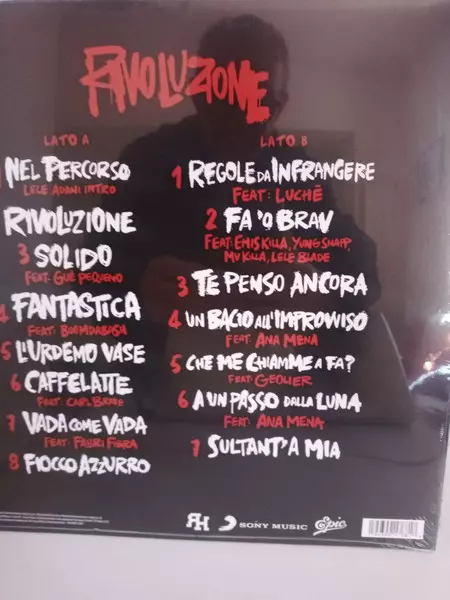 RIVOLUZIONE
LATO A
NEL PERCORSO
LELE ADANI INTRO
RIVOLUZIONE
3 SOLIDO
FEAT: GUÈ PEQUENO
4 FANTASTICA
FEAT: BOOMDABASH
5 L'URDEMO VASE
6 CAFFELATTE
FEAT: CARL BRAVE
7 VADA COME VADA
FEAT: FABRI FIBRA
8 FIOCCO AZZURRO
LATO B
1 REGOLE DA INFRANGERE
FEAT: LUCHÈ
2 FA 'O BRAV
FEAT: EMIS KILLA, YUNG SNAPP,
MV KILLA, LELE BLADE
3 TE PENSO ANCORA
4 UN BACIO ALL'IMPROVVISO
FEAT: ANA MENA
5 CHE ME CHIAMME A FA?
FEAT: GEOLIER
6 A UN PASSO DALLA LUNA
FEAT: ANA MENA
7 SULTANT'A MIA
RH
SONY MUSIC
Epic